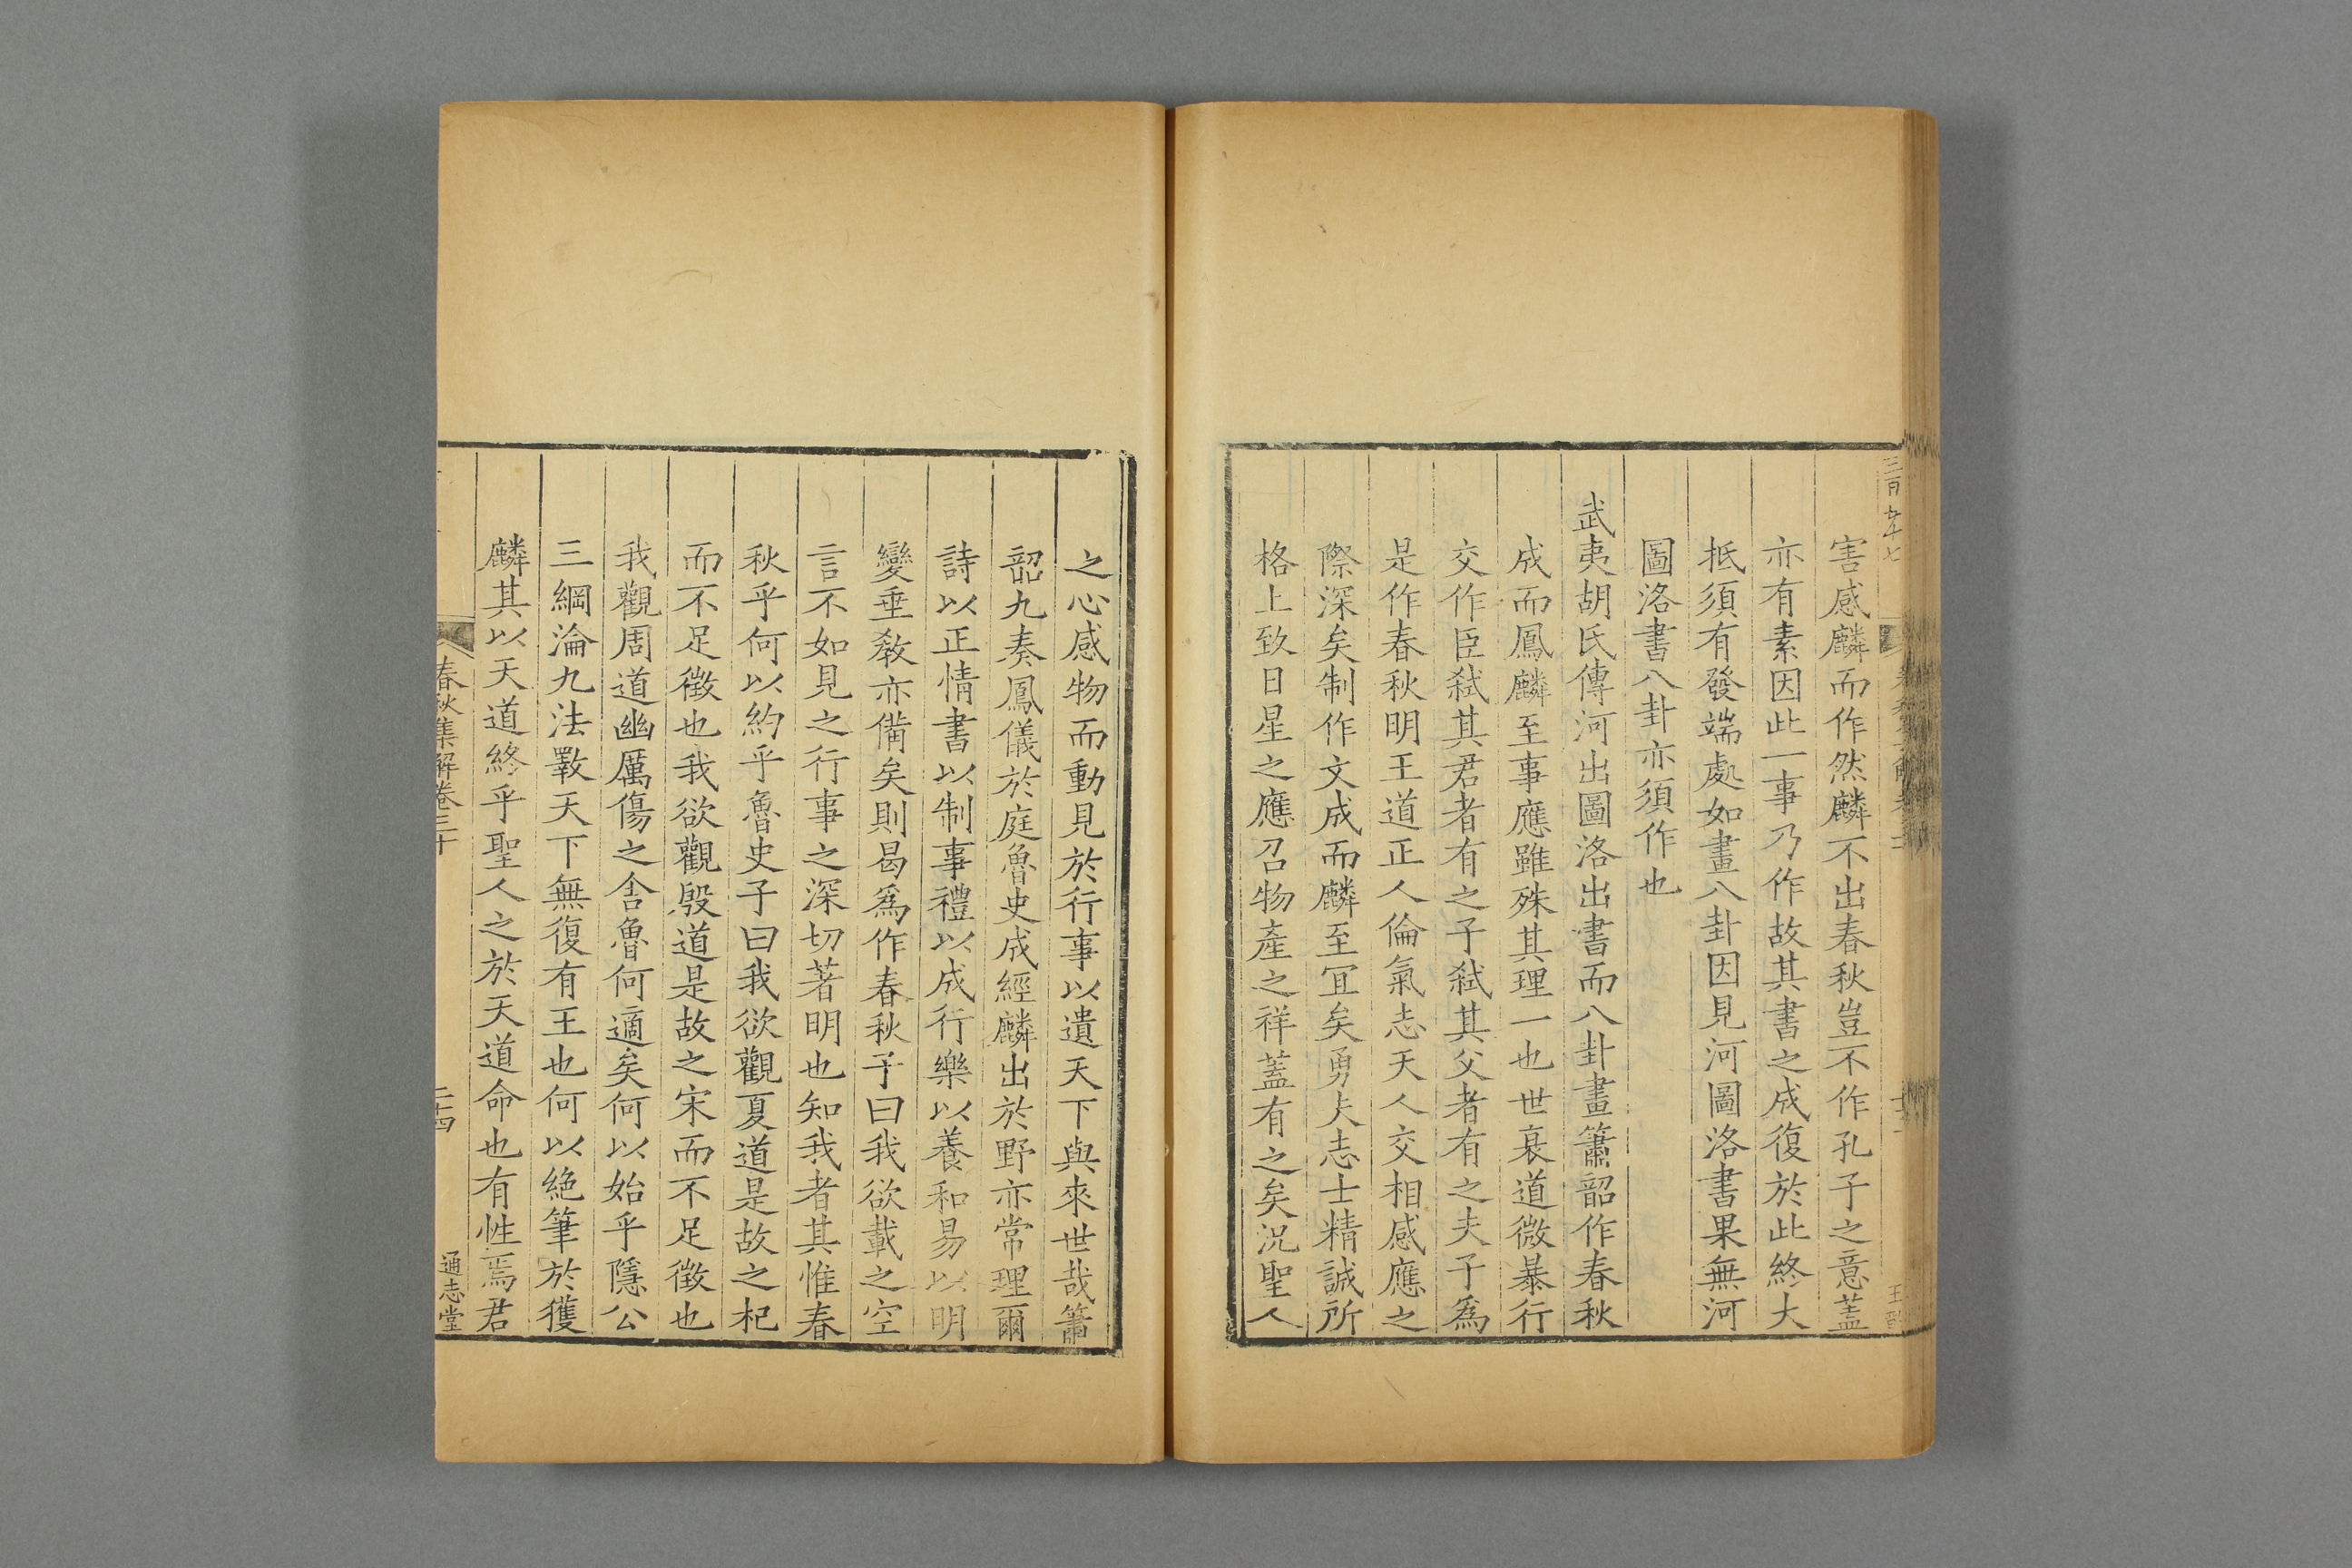 三百五十七
害感麟而作然麟不出春秋豈不作孔子之意蓋
亦有素因此一事乃作故其書之成復於此終大
抵須有發端處如畫八卦因見河圖洛書果無河
圖洛書八卦亦須作也
武夷胡氏傳河出圖洛出書而八卦畫簫韶作春秋
成而鳳麟至事應雖殊其理一也世衰道微暴行
交作臣弒其君者有之子弒其父者有之夫子為
是作春秋明王道正人倫氣志天人交相感應之
際深矣制作文成而麟至宜矣勇夫志士精誠所
格上致日星之應召物產之祥蓋有之矣況聖人
之心感物而動見於行事以遺天下與來世哉簫
韶九奏鳳儀於庭魯史成經麟出於野亦常理爾
詩以正情書以制事禮以成行樂以養和易以明
變垂敎亦備矣則曷爲作春秋予曰我欲載之空
言不如見之行事之深切著明也知我者其惟春
秋乎何以約乎魯史子曰我欲觀夏道是故之杞
而不足徵也我欲觀殷道是故之宋而不足徵也
我觀周道幽厲傷之舎魯何適矣何以始乎隱公
三綱淪九法斁天下無復有王也何以絶筆於獲
麟其以天道終乎聖人之於天道命也有性焉君
春秋集解卷三十
二十四
通志堂